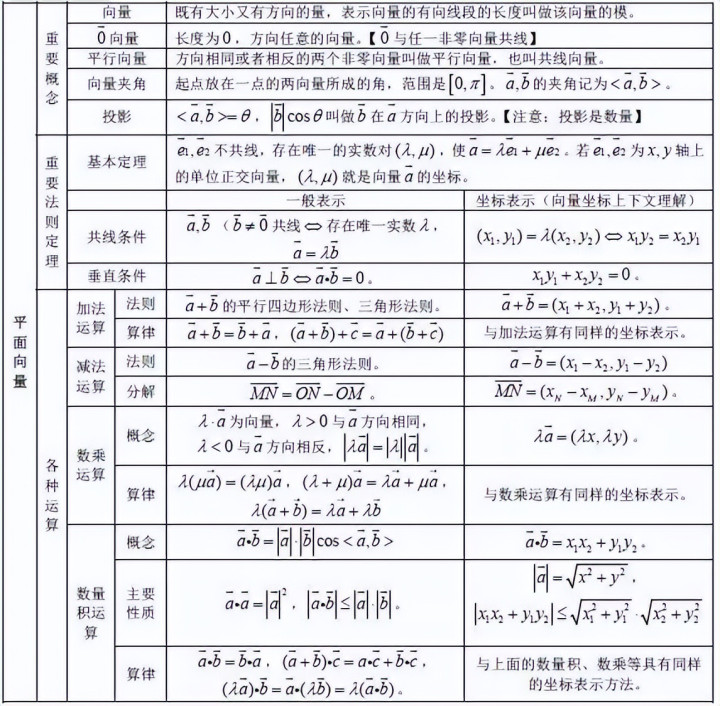 平面向量
重要概念
向量 既有大小又有方向的量，表示向量的有向线段的长度叫做该向量的模。
$\vec{0}$向量 长度为0，方向任意的向量。【$\vec{0}$与任一非零向量共线】
平行向量 方向相同或者相反的两个非零向量叫做平行向量，也叫共线向量。
向量夹角 起点放在一点的两向量所成的角，范围是$[0,\pi]$。$\vec{a},\vec{b}$的夹角记为$<\vec{a},\vec{b}>$。
投影 $<\vec{a},\vec{b}>=\theta$，$|\vec{b}|\cos\theta$叫做$\vec{b}$在$\vec{a}$方向上的投影。【注意：投影是数量】
重要法则定理
基本定理 $\vec{e_1},\vec{e_2}$不共线，存在唯一的实数对$(\lambda,\mu)$，使$\vec{a}=\lambda\vec{e_1}+\mu\vec{e_2}$。若$\vec{e_1},\vec{e_2}$为$x,y$轴上
的单位正交向量，$(\lambda,\mu)$就是向量$\vec{a}$的坐标。
一般表示 坐标表示（向量坐标上下文理解）
共线条件 $\vec{a},\vec{b}$（$\vec{b}\neq\vec{0}$共线$\Leftrightarrow$存在唯一实数$\lambda$，
$\vec{a}=\lambda\vec{b}$
$(x_1,y_1)=\lambda(x_2,y_2)\Leftrightarrow x_1y_2=x_2y_1$
垂直条件 $\vec{a}\perp\vec{b}\Leftrightarrow\vec{a}\bullet\vec{b}=0$。 $x_1y_1+x_2y_2=0$。
各种运算
加法运算
法则 $\vec{a}+\vec{b}$的平行四边形法则、三角形法则。 $\vec{a}+\vec{b}=(x_1+x_2,y_1+y_2)$。
算律 $\vec{a}+\vec{b}=\vec{b}+\vec{a}$，$(\vec{a}+\vec{b})+\vec{c}=\vec{a}+(\vec{b}+\vec{c})$ 与加法运算有同样的坐标表示。
减法运算
法则 $\vec{a}-\vec{b}$的三角形法则。 $\vec{a}-\vec{b}=(x_1-x_2,y_1-y_2)$
分解 $\overrightarrow{MN}=\overrightarrow{ON}-\overrightarrow{OM}$。 $\overrightarrow{MN}=(x_N-x_M,y_N-y_M)$。
数乘运算
概念 $\lambda\cdot\vec{a}$为向量，$\lambda>0$与$\vec{a}$方向相同，
$\lambda<0$与$\vec{a}$方向相反，$|\lambda\vec{a}|=|\lambda||\vec{a}|$。
$\lambda\vec{a}=(\lambda x,\lambda y)$。
算律 $\lambda(\mu\vec{a})=(\lambda\mu)\vec{a}$，$(\lambda+\mu)\vec{a}=\lambda\vec{a}+\mu\vec{a}$，
$\lambda(\vec{a}+\vec{b})=\lambda\vec{a}+\lambda\vec{b}$
与数乘运算有同样的坐标表示。
数量积运算
概念 $\vec{a}\bullet\vec{b}=|\vec{a}|\cdot|\vec{b}|\cos<\vec{a},\vec{b}>$ $\vec{a}\bullet\vec{b}=x_1x_2+y_1y_2$。
主要性质 $\vec{a}\bullet\vec{a}=|\vec{a}|^2$，$|\vec{a}\bullet\vec{b}|\leq|\vec{a}|\cdot|\vec{b}|$。
$|\vec{a}|=\sqrt{x^2+y^2}$，
$|x_1x_2+y_1y_2|\leq\sqrt{x_1^2+y_1^2}\cdot\sqrt{x_2^2+y_2^2}$
算律 $\vec{a}\bullet\vec{b}=\vec{b}\bullet\vec{a}$，$(\vec{a}+\vec{b})\bullet\vec{c}=\vec{a}\bullet\vec{c}+\vec{b}\bullet\vec{c}$，
$(\lambda\vec{a})\bullet\vec{b}=\vec{a}\bullet(\lambda\vec{b})=\lambda(\vec{a}\bullet\vec{b})$。
与上面的数量积、数乘等具有同样
的坐标表示方法。